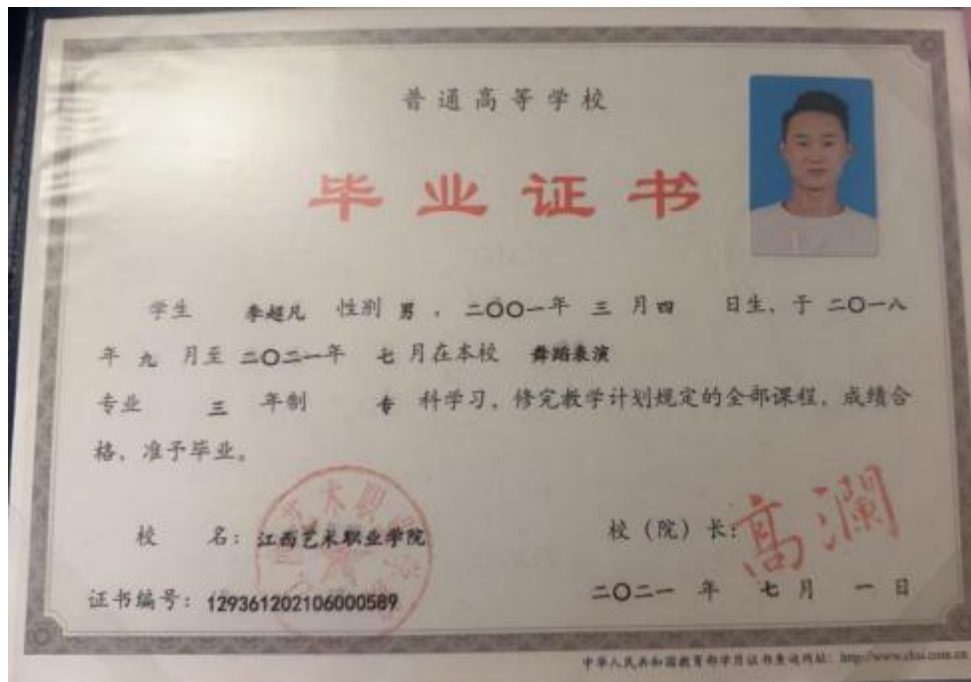 普通高等学校
毕业证书
学生 李超凡 性别 男，二〇〇一年 三 月 四 日生、于 二〇一八
年 九 月至 二〇二一年 七 月在本校 舞蹈表演
专业 三 年制 专 科学习，修完教学计划规定的全部课程，成绩合
格，准予毕业。
校 名：江西艺术职业学院
校（院）长：高澜
证书编号：129361202106000589
二〇二一 年 七 月 一 日
中华人民共和国教育部学历证书查询网址：http://www.chsi.com.cn